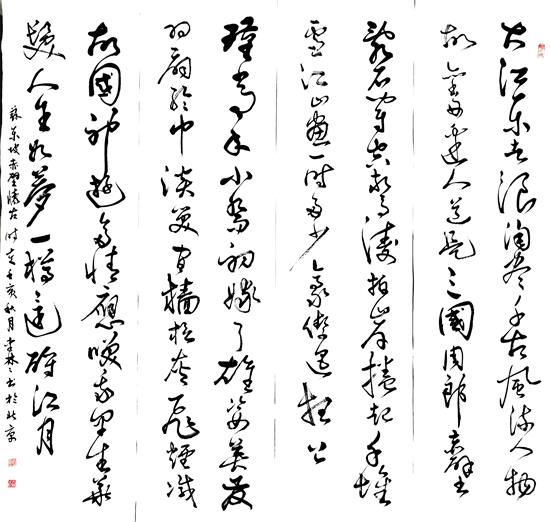 大江东去浪淘尽千古風流人物
故垒西边人道是三國周郎赤壁
乱石穿空惊涛拍岸捲起千堆
雪江山如畫一时多少豪傑遥想公
瑾当年小乔初嫁了雄姿英发
羽扇纶巾谈笑间樯橹灰飞煙滅
故國神遊多情應笑我早生华
髮人生如夢一樽还酹江月
苏东坡赤壁怀古 时在 亥秋月 林 书於北京